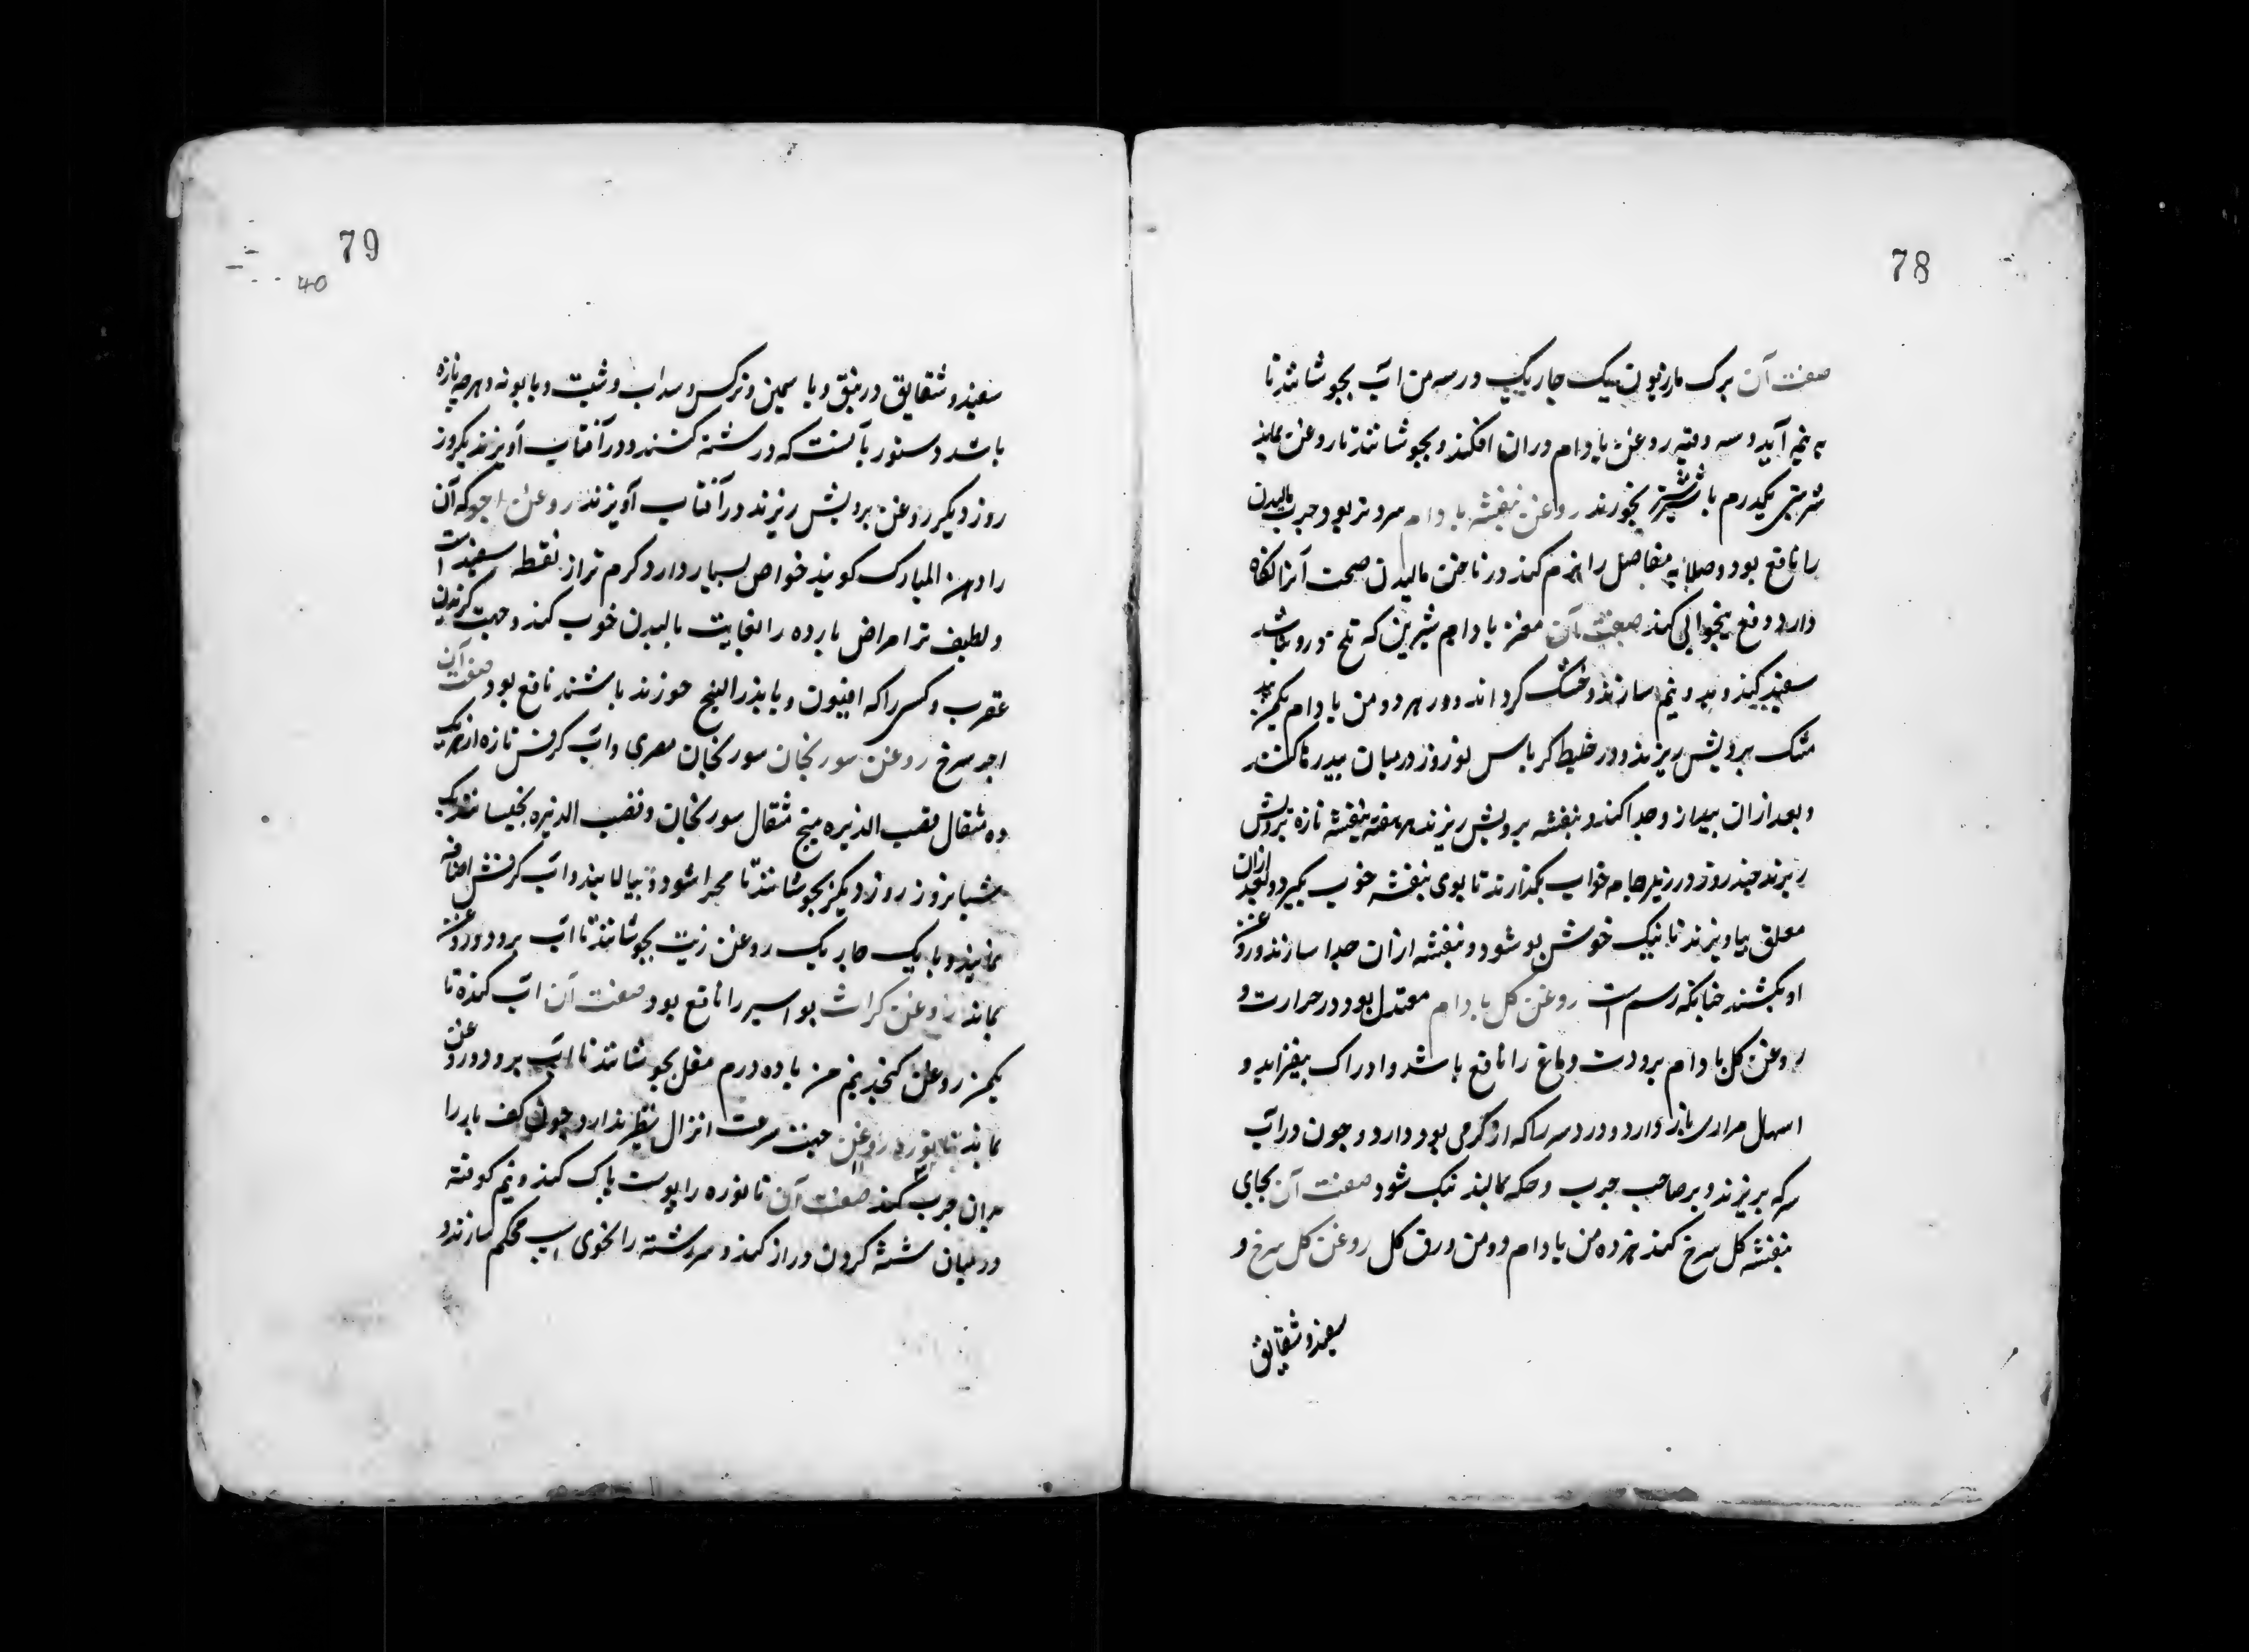 78
صفت آن برک مازریون نیک چاریک در سه من آب بجوشانند تا
به نیم آید و سه وقیه روغن بادام دران افکند و بجوشانند تا روغن بماند
شربتی یکدرم با شیر شتر بخورند روغن بنفشه بادام سرد و تر بود و جرب مالیدن
را نافع بود و صلابه مفاصل را نرم کند و در ناخن مالیدن صحت آنرا نکاه
دارد و دفع بیخوابی کند صفت آن مغز بادام شیرین که تلخ درو نباشد
سفید کنند و بدو نیم سازند و خشک کردانند و در هر دو من بادام یکمن بید
مشک برویش ریزند و در خلیط کرباس نو روز در میان بید رها کنند
و بعد ازان بید ازو جدا کنند و بنفشه برویش ریزند هر هفته بنفشه تازه برویش
ریزند چند روز در زیر جامه خواب بکذارند تا بوی بنفشه خوب بکیرد و بعد ازان
معلق بیاویزند تا نیک خوش بو شود و بنفشه ازان جدا سازند و روغن
او بکشند چنانکه رسم است روغن کل بادام معتدل بود در حرارت و
روغن کل بادام برودت دماغ را نافع باشد و ادراک بیفزاید و
اسهال مراری باز دارد و درد سر را که از کرمی بود دارد و چون در آب
سرکه بریزند و بر صاحب جرب و حکه بمالند نیک شود صفت آن بجای
بنفشه کل سرخ کنند هر ده من بادام دو من ورق کل روغن کل سرخ و
سفید و شقایق
79
40
سفید و شقایق و زنبق و یاسمین و نرکس و سداب و شبت و بابونه و هر چه تازه
باشد دستور بآنست که در شیشه کنند و در آفتاب آویزند یکروز
روز دیکر روغن برویش ریزند در آفتاب آویزند روغن اجر که آن
را دهن المبارک کویند خواص بسیار دارد کرم تر از نفط سفید است
و لطیف تر امراض بارده را بغایت مالیدن خوب کند و جهت کزیدن
عقرب و کسی را که افیون و یا بذر البنج خورند باشند نافع بود صفت آن
اجر سرخ روغن سورنجان سورنجان مصری و آب کرفس تازه از هر یک
ده مثقال قصب الذریره پنج مثقال سورنجان و قصب الذریره بخیسانند یک
شبانروز روز دیکر بجوشانند تا مجرا شود و بپالایند و آب کرفس اضافه
نمایند و با یک چاریک روغن زیت بجوشانند تا آب برود و روغن
بماند روغن کراث بواسیر را نافع بود صفت آن آب کندنا
یکمن روغن کنجد نیم من با ده درم مقل بجوشانند تا آب برود و روغن
بماند روغن جهت سرعت انزال نظیر ندارد چون کف پا را
بدان چرب کنند صفت آن تانوره را پوست پاک کنند و نیم کوفته
در میان شیشه کردن دراز کنند و سر شیشه را بموی اسب محکم سازند و